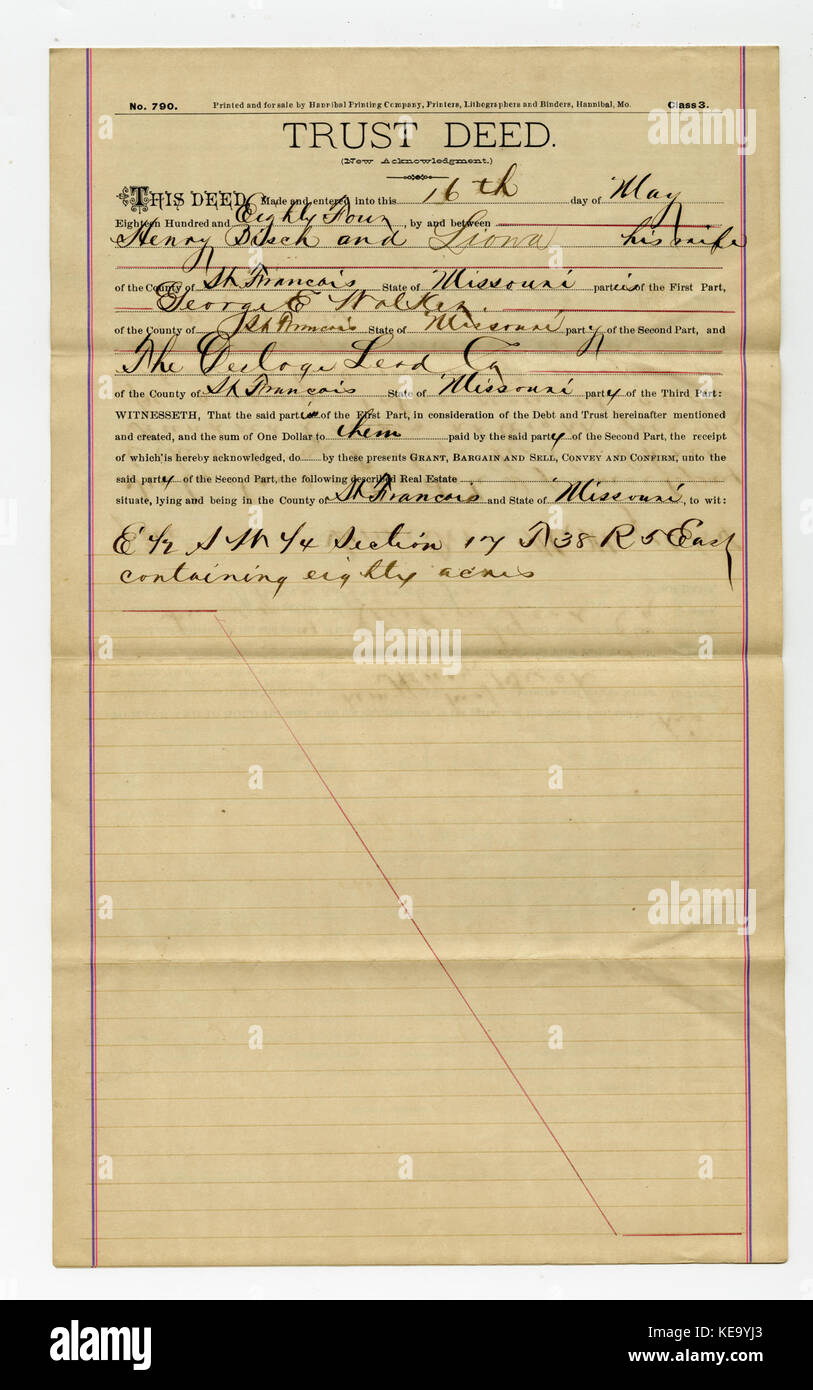 No. 790. Printed and for sale by Hannibal Printing Company, Printers, Lithographers and Binders, Hannibal, Mo. Class 3.
TRUST DEED.
(New Acknowledgment.)
THIS DEED, Made and entered into this 16th day of May
Eighteen Hundred and Eighty Four, by and between
Henry Disch and Liona his wife
of the County of St Francois State of Missouri parties of the First Part,
George E Walker
of the County of St Francois State of Missouri party of the Second Part, and
The Desloge Lead Co
of the County of St Francois State of Missouri party of the Third Part:
WITNESSETH, That the said parties of the First Part, in consideration of the Debt and Trust hereinafter mentioned
and created, and the sum of One Dollar to them paid by the said party of the Second Part, the receipt
of which is hereby acknowledged, do by these presents GRANT, BARGAIN AND SELL, CONVEY AND CONFIRM, unto the
said party of the Second Part, the following described Real Estate
situate, lying and being in the County of St Francois and State of Missouri, to wit:
E 1/2 S W 1/4 Section 17 T 38 R 5 East
containing eighty acres
alamy
alamy
Image ID: KE9YJ3
www.alamy.com